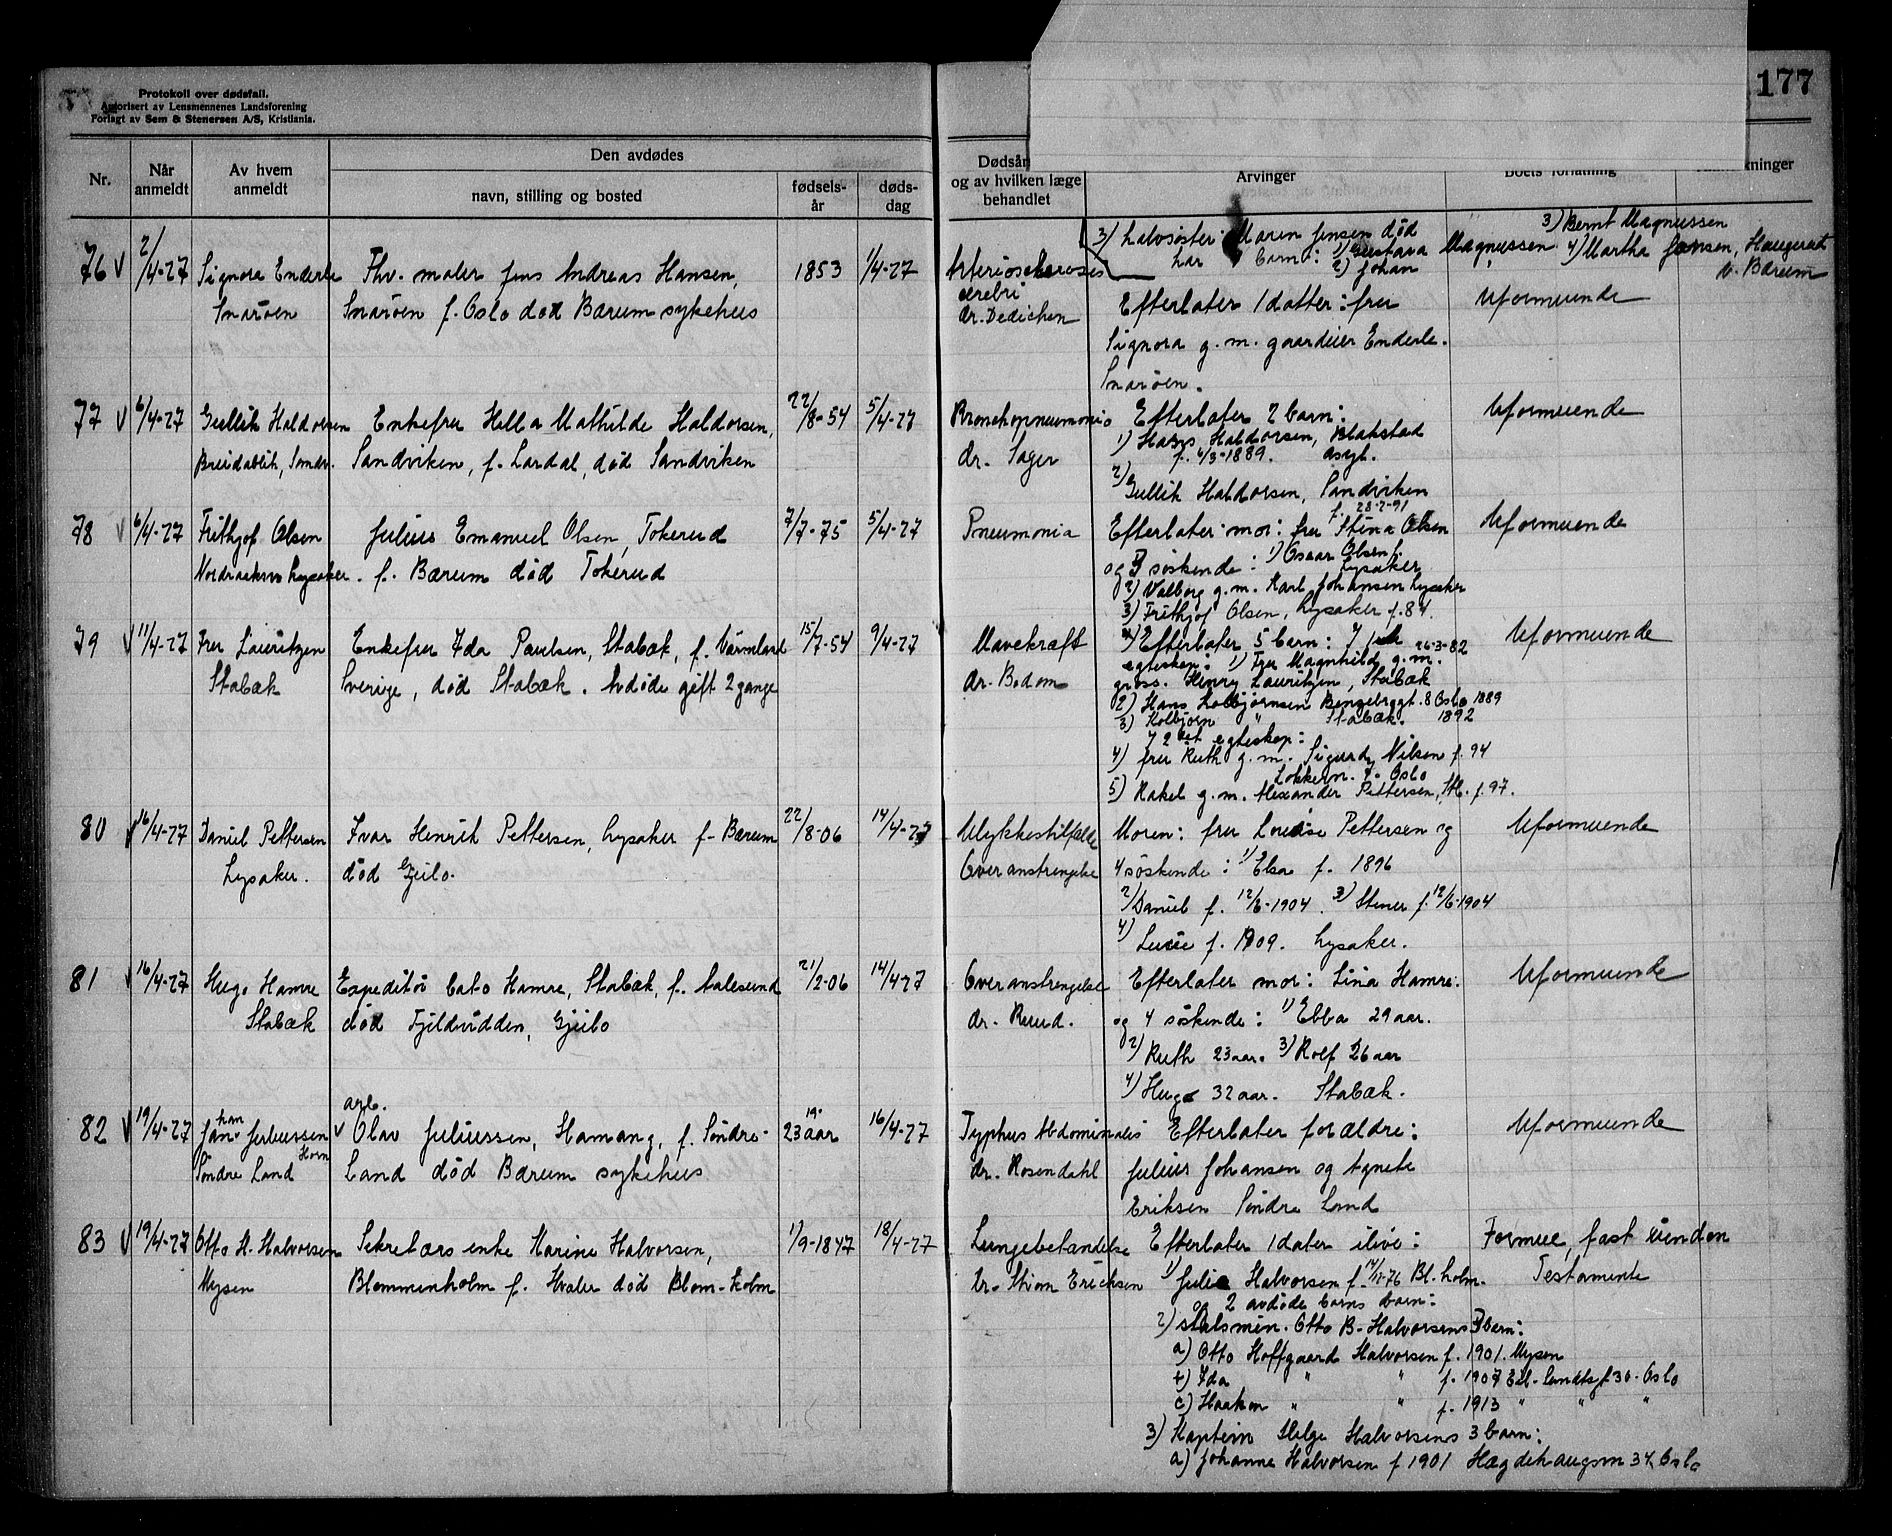 177
Protokoll over dødsfall.
Autorisert av Lensmennenes Landsforening
Forlagt av Sem & Stenersen A/S, Kristiania.
Nr.
Når anmeldt
Av hvem anmeldt
Den avdødes
navn, stilling og bosted
fødsels-år
døds-dag
Dødsår
og av hvilken læge behandlet
Arvinger
Boets forfatning
kninger
3) halvsøster Maren Jensen død
har barn: 1) Gustava Magnussen 3) Bernt Magnussen
2) Johan " 4) Martha Jansen, Haugerud
v. Bærum
76 V 2/4-27 Signora Enderle Fhv. maler Jens Andreas Hansen, 1853 1/4-27 Arteriosclerosis
Snarøen Snarøen f. Oslo død Bærum sykehus cerebri
dr. Dedichen
Efterlater 1 datter: fru Uformuende
Signora g.m. gaardeier Enderle.
Snarøen.
77 V 6/4-27 Gullik Haldorsen Enkefru Hella Mathilde Haldorsen, 22/8-54 5/4-27 Bronchopneumoni Efterlater 2 barn: Uformuende
Breidablik, Sandv. Sandviken, f. Lardal, død Sandviken dr. Sager
1) Hans Haldorsen, Blakstad
f. 4/3-1889. asyl.
2) Gullik Haldorsen, Sandviken
f. 28-2-91
78 V 6/4-27 Frithjof Olsen Julius Emanuel Olsen, Tokerud 7/7-75 5/4-27 Pneumonia Efterlater mor: fru Stina Olsen Uformuende
Lysaker. f. Bærum død Tokerud
og 3 søskende: 1) Oscar Olsen f.
Lysaker
2) Valborg g.m. Karl Johansen Lysaker
3) Frithjof Olsen, Lysaker f. 84.
79 V 11/4-27 Fru Lauritzen Enkefru Ida Paulsen, Stabæk, f. Värmland 15/7-54 9/4-27 Mavekræft Efterlater 5 barn: I 1ste 26-3-82 Uformuende
Stabæk Sverige, død Stabæk. Avdøde gift 2 gange dr. Bodom
egteskap: 1) Fru Magnhild g.m.
gross. Henry Lauritzen, Stabæk
2) Hans Kolbjørnsen Bengebrygt. 8 Oslo 1889
3) Kolbjørn " Stabæk. 1892
I 2det egteskap:
4) fru Ruth g.m. Sigurd Nilsen f. 94
Oslo
5) Rakel g.m. Alexander Pettersen, Stb. f. 97.
80 V 16/4-27 Daniel Pettersen Ivar Henrik Pettersen, Lysaker f. Bærum 22/8-06 14/4-27 Ulykkestilfælde Moren: fru Louise Pettersen og Uformuende
Lysaker. død Geilo. Overanstrengelse 4 søskende: 1) Elsa f. 1896
2) Daniel f. 12/6-1904. 3) Stener f. 12/6-1904
4) f. 1909. Lysaker.
81 V 16/4-27 Hugo Hamre Expeditør Cato Hamre, Stabæk, f. Aalesund 21/2-06 14/4-27 Overanstrengelse Efterlater mor: Lina Hamre: Uformuende
Stabæk død Fjeldvidden, Gjeilo dr. Ruud. og 4 søskende: 1) Ebba 29 aar.
2) Ruth 23 aar. 3) Rolf 26 aar
4) Hugo 32 aar. Stabæk.
arb.
82 V 19/4-27 Julius Johansen V Olav Juliussen, Hamang, f. Søndre- 23 aar 16/4-27 Typhus Abdominalis Efterlater forældre: Uformuende
Horn
Søndre Land Land død Bærum sykehus dr. Rosendahl Julius Johansen og Agnete
Eriksen Søndre Land
83 V 19/4-27 Otto H. Halvorsen Sekretærs enke Karine Halvorsen, 1/9-1847 18/4-27 Lungebetændelse Efterlater 1 dater ilive: Formue, fast eiendom
Mysen Blommenholm f. Hvaler død Blom-holm dr. Thiom Ericksen 1) Julie Halvorsen f. 14/11-76 Bl.holm. Testamente
og 2 avdøde barns barn:
2) statsmin. Otto B. Halvorsens 3 barn:
a) Otto Hoffgaard Halvorsen f. 1901. Mysen
b) Ida " " f. 1907 Eil. Sundtsgt 30. Oslo
c) Haakon " " f. 1913 " " "
3) Kaptein Helge Halvorsens 3 barn:
a) Johanne Halvorsen f 1901 Hægdehaugsvn 34, Oslo